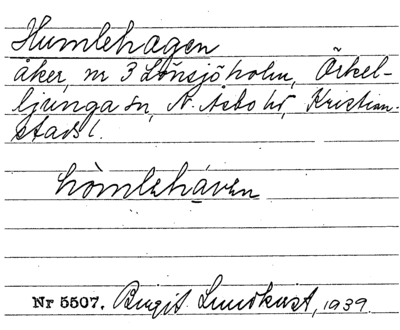 Humlehagen
åker, nr 3 Lönsjöholm, Örkel-
ljunga sn, N. Åsbo hd, Kristian-
stads l.
hòmlehàven
Nr 5507. Birgit Lundkvist, 1939.